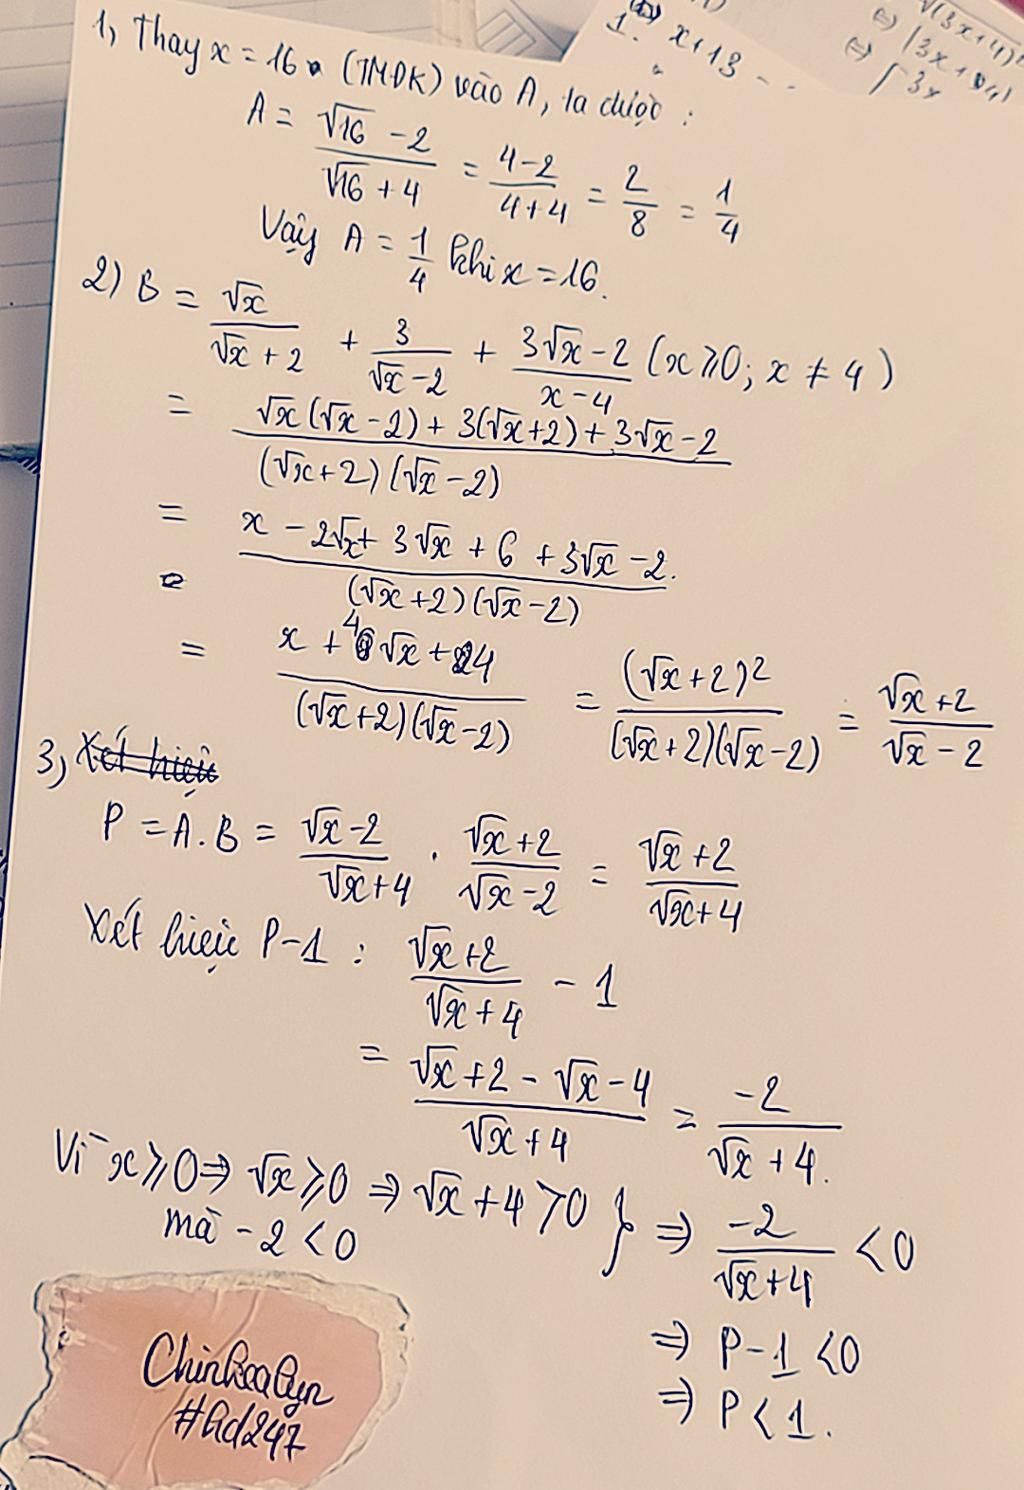 1. x+13 - ..
√(3x+4)²
⇔ |3x+
⇔ [3x
1, Thay x = 16 (TMĐK) vào A, ta được :
A = (√16 - 2)/(√16 + 4) = (4-2)/(4+4) = 2/8 = 1/4
Vậy A = 1/4 khi x = 16.
2) B = √x/(√x + 2) + 3/(√x - 2) + (3√x - 2)/(x - 4) (x ⩾ 0; x ≠ 4)
= (√x(√x - 2) + 3(√x+2) + 3√x - 2)/((√x+2)(√x - 2))
= (x - 2√x + 3√x + 6 + 3√x - 2.)/((√x+2)(√x - 2))
= (x + 4√x + 4)/((√x+2)(√x-2)) = (√x+2)²/((√x+2)(√x-2)) = (√x+2)/(√x-2)
3, Xét hiệu
P = A.B = (√x-2)/(√x+4) . (√x+2)/(√x-2) = (√x+2)/(√x+4)
Xét hiệu P-1 : (√x+2)/(√x+4) - 1
= (√x+2 - √x-4)/(√x+4) = -2/(√x+4).
Vì x ⩾ 0 ⇒ √x ⩾ 0 ⇒ √x + 4 > 0 } ⇒ -2/(√x+4) < 0
mà -2 < 0
⇒ P-1 < 0
⇒ P < 1.
ChinReaLyn
#Ad247